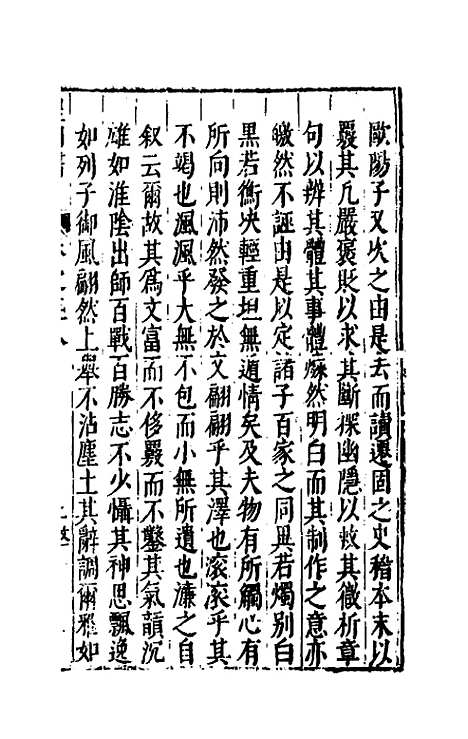 歐陽子又次之由是去而讀遷固之史稽本末以
覈其凡嚴褒貶以求其斷探幽隱以救其徵析章
句以辨其體其事體瘯然明白而其制作之意亦
皦然不誣由是以定諸子百家之同異若燭別白
黒若衡決輕重坦無遁情矣及夫物有所觸心有
所向則沛然發之於文翩翩乎其澤也滚滚乎其
不竭也渢渢乎大無不包而小無所遺也濂之自
叙云爾故其爲文富而不侈覈而不鑿其氣韻沉
雄如淮陰出師百戰百勝志不少懾其神思飄逸
如列子御風翩然上舉不沾塵土其辭調爾雅如